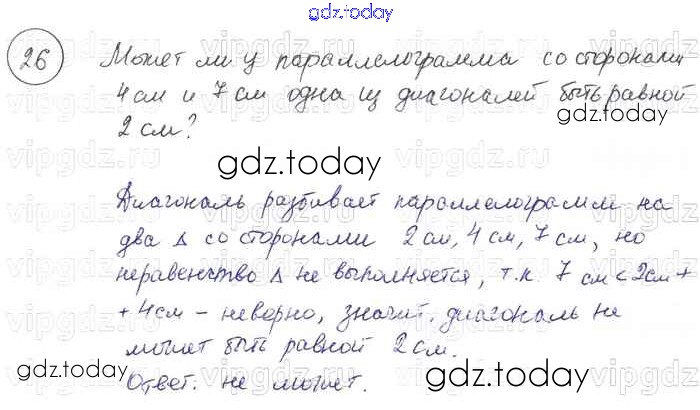 gdz.today
26 Может ли у параллелограмма со сторонами
4 см и 7 см одна из диагоналей быть равной
2 см?
gdz.today
Диагональ разбивает параллелограмм на
два Δ со сторонами 2 см, 4 см, 7 см, но
неравенство Δ не выполняется, т.к. 7 см < 2см +
+ 4см – неверно, значит. диагональ не
может быть равной 2 см.
Ответ: не может.
gdz.today
gdz.today
vipgdz.ru